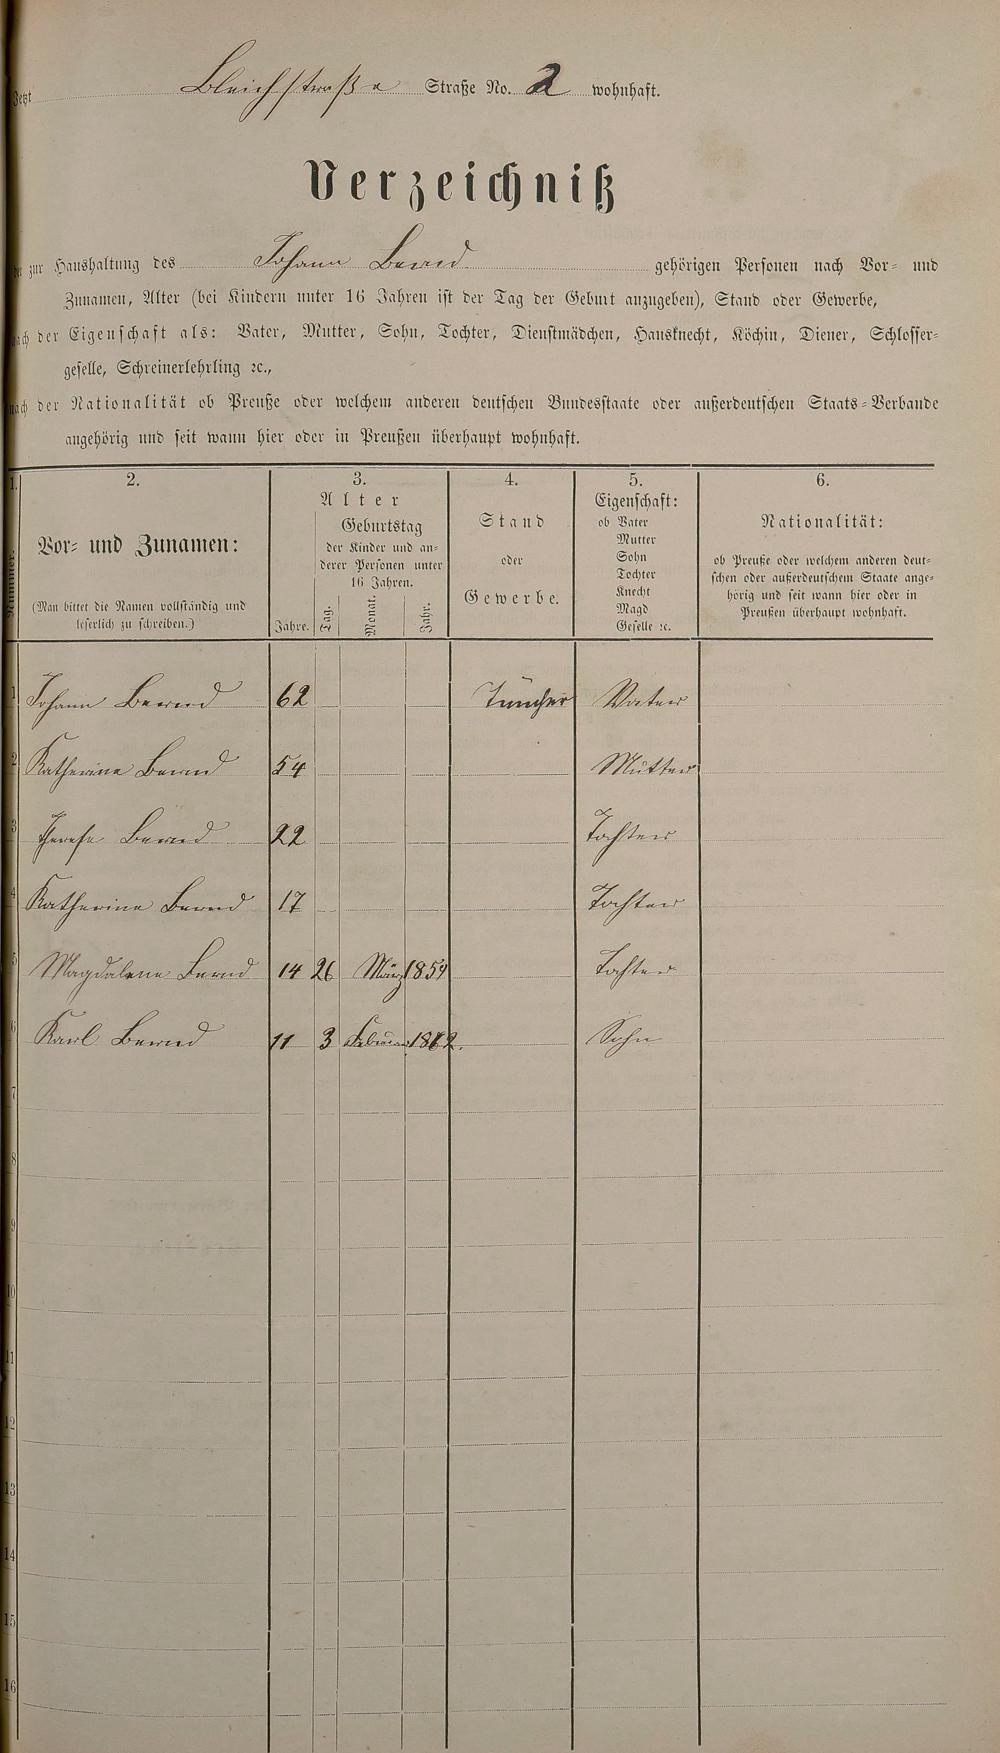 Jetzt Bleichstraße Straße No. 2 wohnhaft.
Verzeichniß
der zur Haushaltung des Johann Bernd gehörigen Personen nach Vor- und
Zunamen, Alter (bei Kindern unter 16 Jahren ist der Tag der Geburt anzugeben), Stand oder Gewerbe,
nach der Eigenschaft als: Vater, Mutter, Sohn, Tochter, Dienstmädchen, Hausknecht, Köchin, Diener, Schlosser-
geselle, Schreinerlehrling ꝛc.,
nach der Nationalität ob Preuße oder welchem anderen deutschen Bundesstaate oder außerdeutschen Staats-Verbande
angehörig und seit wann hier oder in Preußen überhaupt wohnhaft.
1.
Nummer.
2.
Vor- und Zunamen:
(Man bittet die Namen vollständig und
leserlich zu schreiben.)
3.
Alter
Jahre.
Geburtstag
der Kinder und an-
derer Personen unter
16 Jahren.
Tag. Monat. Jahr.
4.
Stand
oder
Gewerbe.
5.
Eigenschaft:
ob Vater
Mutter
Sohn
Tochter
Knecht
Magd
Geselle ꝛc.
6.
Nationalität:
ob Preuße oder welchem anderen deut-
schen oder außerdeutschem Staate ange-
hörig und seit wann hier oder in
Preußen überhaupt wohnhaft.
1 Johann Bernd 62 Tüncher Vater
2 Katherine Bernd 54 Mutter
3 Therese Bernd 22 Tochter
4 Katherine Bernd 17 Tochter
5 Magdalena Bernd 14 26 März 1859 Tochter
6 Karl Bernd 11 3 Februar 1862. Sohn
7
8
9
10
11
12
13
14
15
16